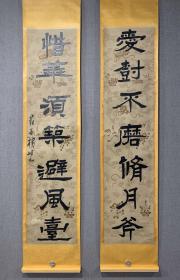 愛對不磨脩月斧
惜華須築避風臺